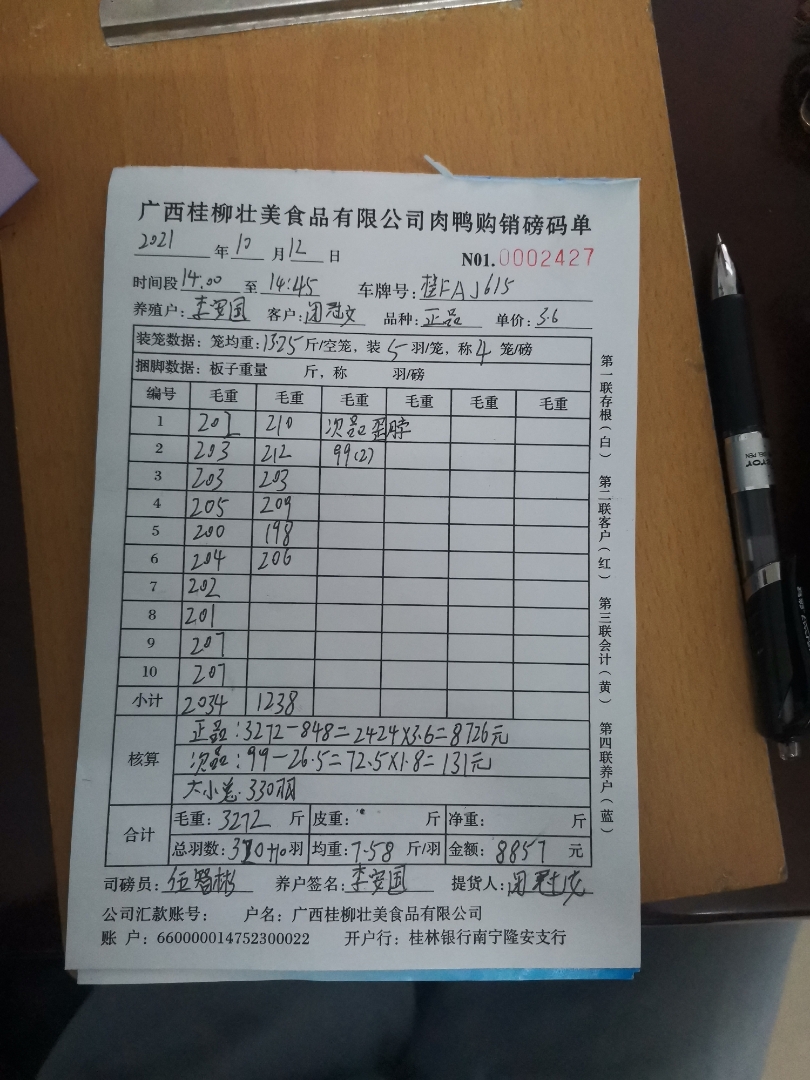 广西桂柳壮美食品有限公司肉鸭购销磅码单
2021 年 10 月 12 日 N01.0002427
时间段 14:00 至 14:45 车牌号: 桂FAJ615
养殖户: 李安国 客户: 闭冠文 品种: 正品 单价: 3.6
装笼数据: 笼均重: 13.25 斤/空笼, 装 5 羽/笼, 称 4 笼/磅
捆脚数据: 板子重量 斤, 称 羽/磅
编号 毛重 毛重 毛重 毛重 毛重 毛重
1 202 210 次品
2 203 212 99(2)
3 203 203
4 205 209
5 200 198
6 204 206
7 202
8 201
9 207
10 207
小计 2034 1238
核算
正品:3272-848=2424×3.6=8726元
次品:99-26.5=72.5×1.8=131元
大小总.330羽
合计
毛重: 3272 斤 皮重: 斤 净重: 斤
总羽数: 320+10 羽 均重: 7.58 斤/羽 金额: 8857 元
司磅员: 伍智彬 养户签名: 李安国 提货人: 闭冠文
公司汇款账号: 户名: 广西桂柳壮美食品有限公司
账 户: 660000014752300022 开户行: 桂林银行南宁隆安支行
第一联存根(白)
第二联客户(红)
第三联会计(黄)
第四联养户(蓝)